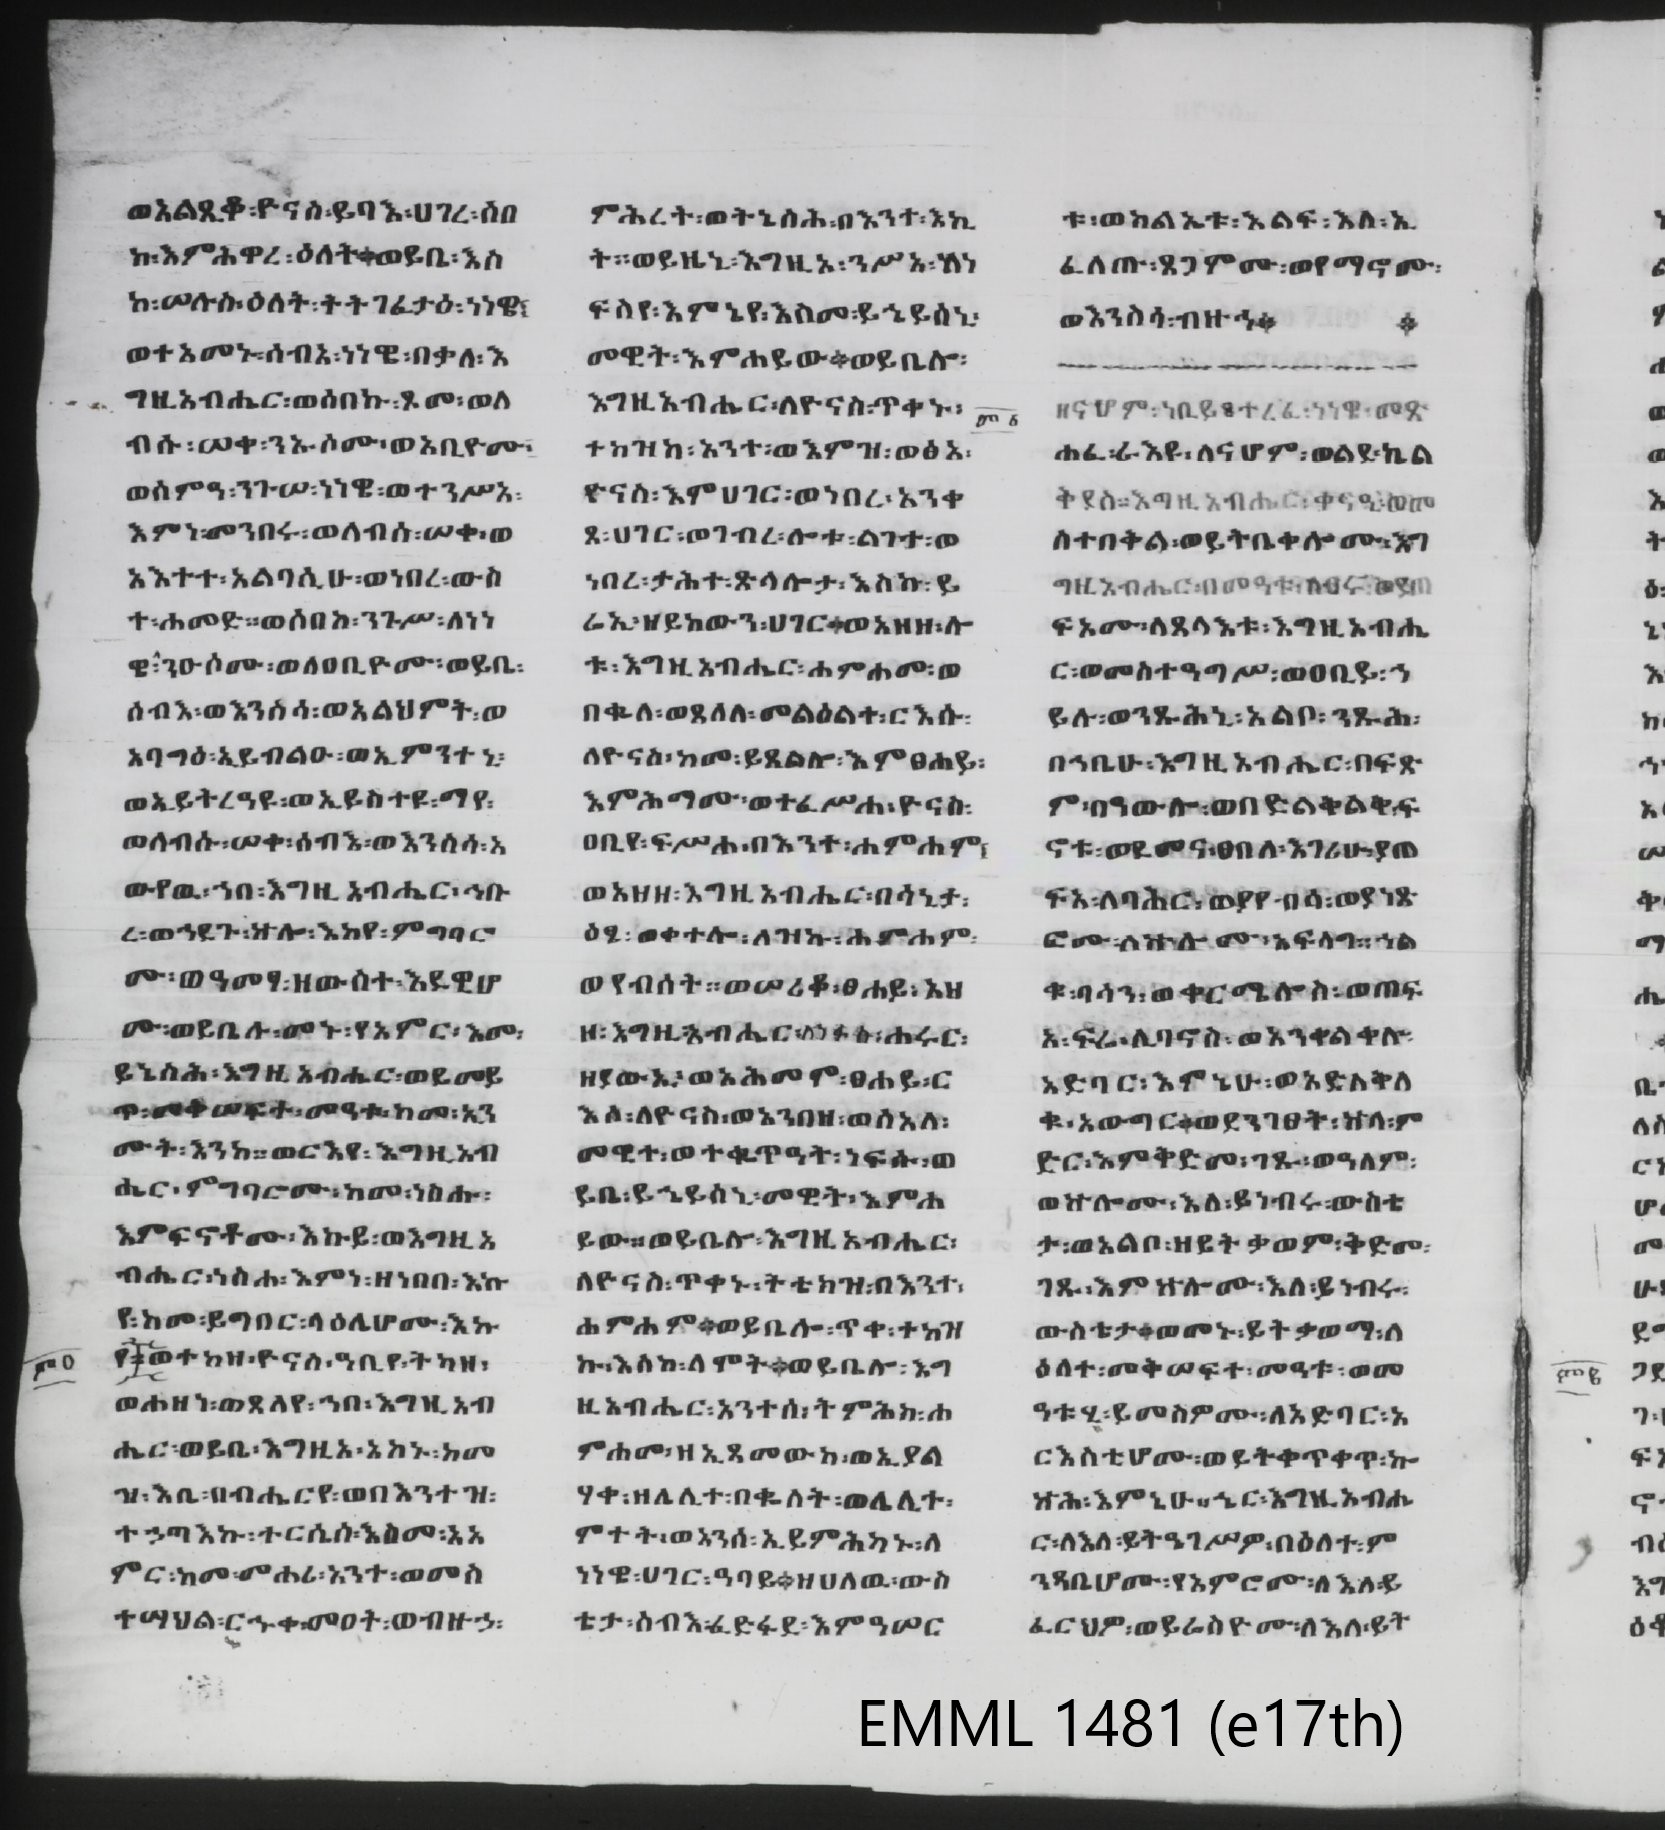 ወአልጺቆ፡ዮናስ፡ይባእ፡ሀገረ፡ሰበ
ከ፡እምሕዋረ፡ዕለት፨ወይቤ፡እስ
ከ፡ሠሉስ፡ዕለት፡ትትገፈታዕ፡ነነዌ፤
ወተአመኑ፡ሰብአ፡ነነዌ፡በቃለ፡እ
ግዚአብሔር፡ወሰበኩ፡ጾመ፡ወለ
ብሱ፡ሠቀ፡ንኡሶሙ፡ወአቢዮሙ፡
ወሰምዓ፡ንጉሠ፡ነነዌ፡ወተንሥአ፡
እምነ፡መንበሩ፡ወለብሰ፡ሠቀ፡ወ
አእተተ፡አልባሲሁ፡ወነበረ፡ውስ
ተ፡ሐመድ።ወሰበከ፡ንጉሥ፡ለነነ
ዌ፡ንዑሶሙ፡ወለዐቢዮሙ፡ወይቤ፡
ሰብእ፡ወእንስሳ፡ወአልህምት፡ወ
አባግዕ፡ኢይብልዑ፡ወኢምንተኒ፡
ወኢይትረዓዩ፡ወኢይስተዩ፡ማየ፡
ወለብሱ፡ሠቀ፡ሰብእ፡ወእንስሳ፡አ
ውየዉ፡ኀበ፡እግዚአብሔር፡ኅቡ
ረ፡ወኀደጉ፡ኵሎ፡እከየ፡ምግባሮ
ሙ፡ወዓመፃ፡ዘውስተ፡እደዊሆ
ሙ፡ወይቤሉ፡መኑ፡የአምር፡እመ፡
ይኔስሕ፡እግዚአብሔር፡ወይመይ
ጥ፡መቅሠፍተ፡መዓቱ፡ከመ፡ኢን
ሙት፡እንከ።ወርእየ፡እግዚአብ
ሔር፡ምግባሮሙ፡ከመ፡ነስሑ፡
እምፍኖቶሙ፡እኩይ፡ወእግዚአ
ብሔር፡ነስሐ፡እምነ፡ዘነበበ፡እኩ
የ፡ከመ፡ይግበር፡ላዕሌሆሙ፡እኩ
የ፨ወተከዘ፡ዮናስ፡ዓቢየ፡ትካዘ፡
ወሐዘነ፡ወጸለየ፡ኀበ፡እግዚአብ
ሔር፡ወይቤ፡እግዚአ፡አኮኑ፡ከመ
ዝ፡እቤ፡በብሔርየ፡ወበእንተዝ፡
ተኃጣእኩ፡ተርሴስ፡እስመ፡አአ
ምር፡ከመ፡መሐሪ፡አንተ፡ወመስ
ተሣህል፡ርኁቀ፡መዐት፡ወብዙኃ፡
ምሕረት፡ወትኔስሕ፡በእንተ፡እኪ
ት።ወይዜኒ፡እግዚአ፡ንሥአ፡ለነ
ፍስየ፡እምኔየ፡እስመ፡ይኄይሰኒ፡
መዊት፡እምሐይው፨ወይቤሎ፡
እግዚአብሔር፡ለዮናስ፡ጥቀኑ፡
ተከዝከ፡አንተ፡ወእምዝ፡ወፅአ፡
ዮናስ፡እምሀገር፡ወነበረ፡አንቀ
ጸ፡ሀገር፡ወገብረ፡ሎቱ፡ልገተ፡ወ
ነበረ፡ታሕተ፡ጽላሎታ፡እስኩ፡ይ
ሬኢ፡ዘይከውን፡ሀገር፨ወአዘዘ፡ሎ
ቱ፡እግዚአብሔር፡ሐምሐመ፡ወ
በቈለ፡ወጸለለ፡መልዕልተ፡ርእሱ፡
ለዮናስ፡ከመ፡ይጸልሎ፡እምፀሐይ፡
እምሕማሙ፡ወተፈሥሐ፡ዮናስ፡
ዐቢየ፡ፍሥሐ፡በእንተ፡ሐምሐም፤
ወአዘዘ፡እግዚአብሔር፡በሳኒታ፡
ዕፄ፡ወቀተሎ፡ለዝኩ፡ሐምሐም፡
ወየብሰት።ወሠሪቆ፡ፀሐይ፡አዘ
ዘ፡እግዚአብሔር፡ለነፋስ፡ሐሩር፡
ዘያውኢ፡ወአሕመም፡ፀሐይ፡ር
እሶ፡ለዮናስ፡ወአንበዘ፡ወሰአለ፡
መዊተ፡ወተቈጥዓት፡ነፍሱ፡ወ
ይቤ፡ይኄይሰኒ፡መዊት፡እምሐ
ይው።ወይቤሎ፡እግዚአብሔር፡
ለዮናስ፡ጥቀኑ፡ትቴክዝ፡በእንተ፡
ሐምሐም፨ወይቤሎ፡ጥቀ፡ተከዝ
ኩ፡እስከ፡ለሞት፨ወይቤሎ፡እግ
ዚአብሔር፡አንተሰ፡ትምሕክ፡ሐ
ምሐመ፡ዘኢጻመውከ፡ወኢያል
ሃቀ፡ዘሌሊተ፡በቈለት፡ወሌሊተ፡
ሞተት፡ወአንሰ፡ኢይምሕካኑ፡ለ
ነነዌ፡ሀገር፡ዓባይ፨ዘሀለዉ፡ውስ
ቴታ፡ሰብእ፡ፈድፋደ፡እምዓሠር
ቱ፡ወክልኤቱ፡እልፍ፡እለ፡ኢ
ፈለጡ፡ጸጋሞሙ፡ወየማኖሙ፡
ወእንስሳ፡ብዙኅ፨ ፨
ዘናሆም፡ነቢይ፡፩ተረፈ፡ነነዌ፡መጽ
ሐፈ፡ራእዩ፡ለናሆም፡ወልደ፡ኬል
ቅዩስ።እግዚአብሔር፡ቀናዒ፡ወመ
ስተበቅል፡ወይትቤቀሎሙ፡እግ
ግዚአብሔር፡በመዓቱ፡ለፀሩ፡ወያጠ
ፍአሙ፡ለጸላእቱ፡እግዚአብሔ
ር፡ወመስተዓግሥ፡ወዐቢይ፡ኀ
ይሉ፡ወንጹሕኒ፡አልቦ፡ንጹሕ፡
በኀቤሁ፡እግዚአብሔር፡በፍጽ
ም፡በዓውሎ፡ወበድልቅልቅ፡ፍ
ኖቱ፡ወደመና፡ፀበለ፡እገሪሁ፡ያጠ
ፍአ፡ለባሕር፡ወያየብሳ፡ወያነጽ
ፎሙ፡ለኵሎሙ፡አፍላግ።ኀል
ቁ፡ባሳን፡ወቀርሜሎስ፡ወጠፍ
አ፡ፍሬ፡ሊባኖስ፡ወአንቀልቀሉ፡
አድባር፡እምኔሁ፡ወአድለቅለ
ቁ፡አውግር፨ወደንገፀት፡ኵላ፡ም
ድር፡እምቅድመ፡ገጹ፡ወዓለም፡
ወኵሎሙ፡እለ፡ይነብሩ፡ውስቴ
ታ፡ወአልቦ፡ዘይትቃወም፡ቅድመ፡
ገጹ፡እምኵሎሙ፡እለ፡ይነብሩ፡
ውስቴታ፨ወመኑ፡ይትቃወማ፡ለ
ዕለተ፡መቅሠፍተ፡መዓቱ፡ወመ
ዓቱሂ፡ይመስዎሙ፡ለአድባር፡አ
ርእስቲሆሙ፡ወይትቀጥቀጥ፡ኰ
ኵሕ፡እምኔሁ።ኄር፡እግዚአብሔ
ር፡ለእለ፡ይትዔገሥዎ፡በዕለተ፡ም
ንዳቤሆሙ፡የአምሮሙ፡ለእለ፡ይ
ፈርህዎ፡ወይሬስዮሙ፡ለእለ፡ይት
EMML 1481 (e17th)